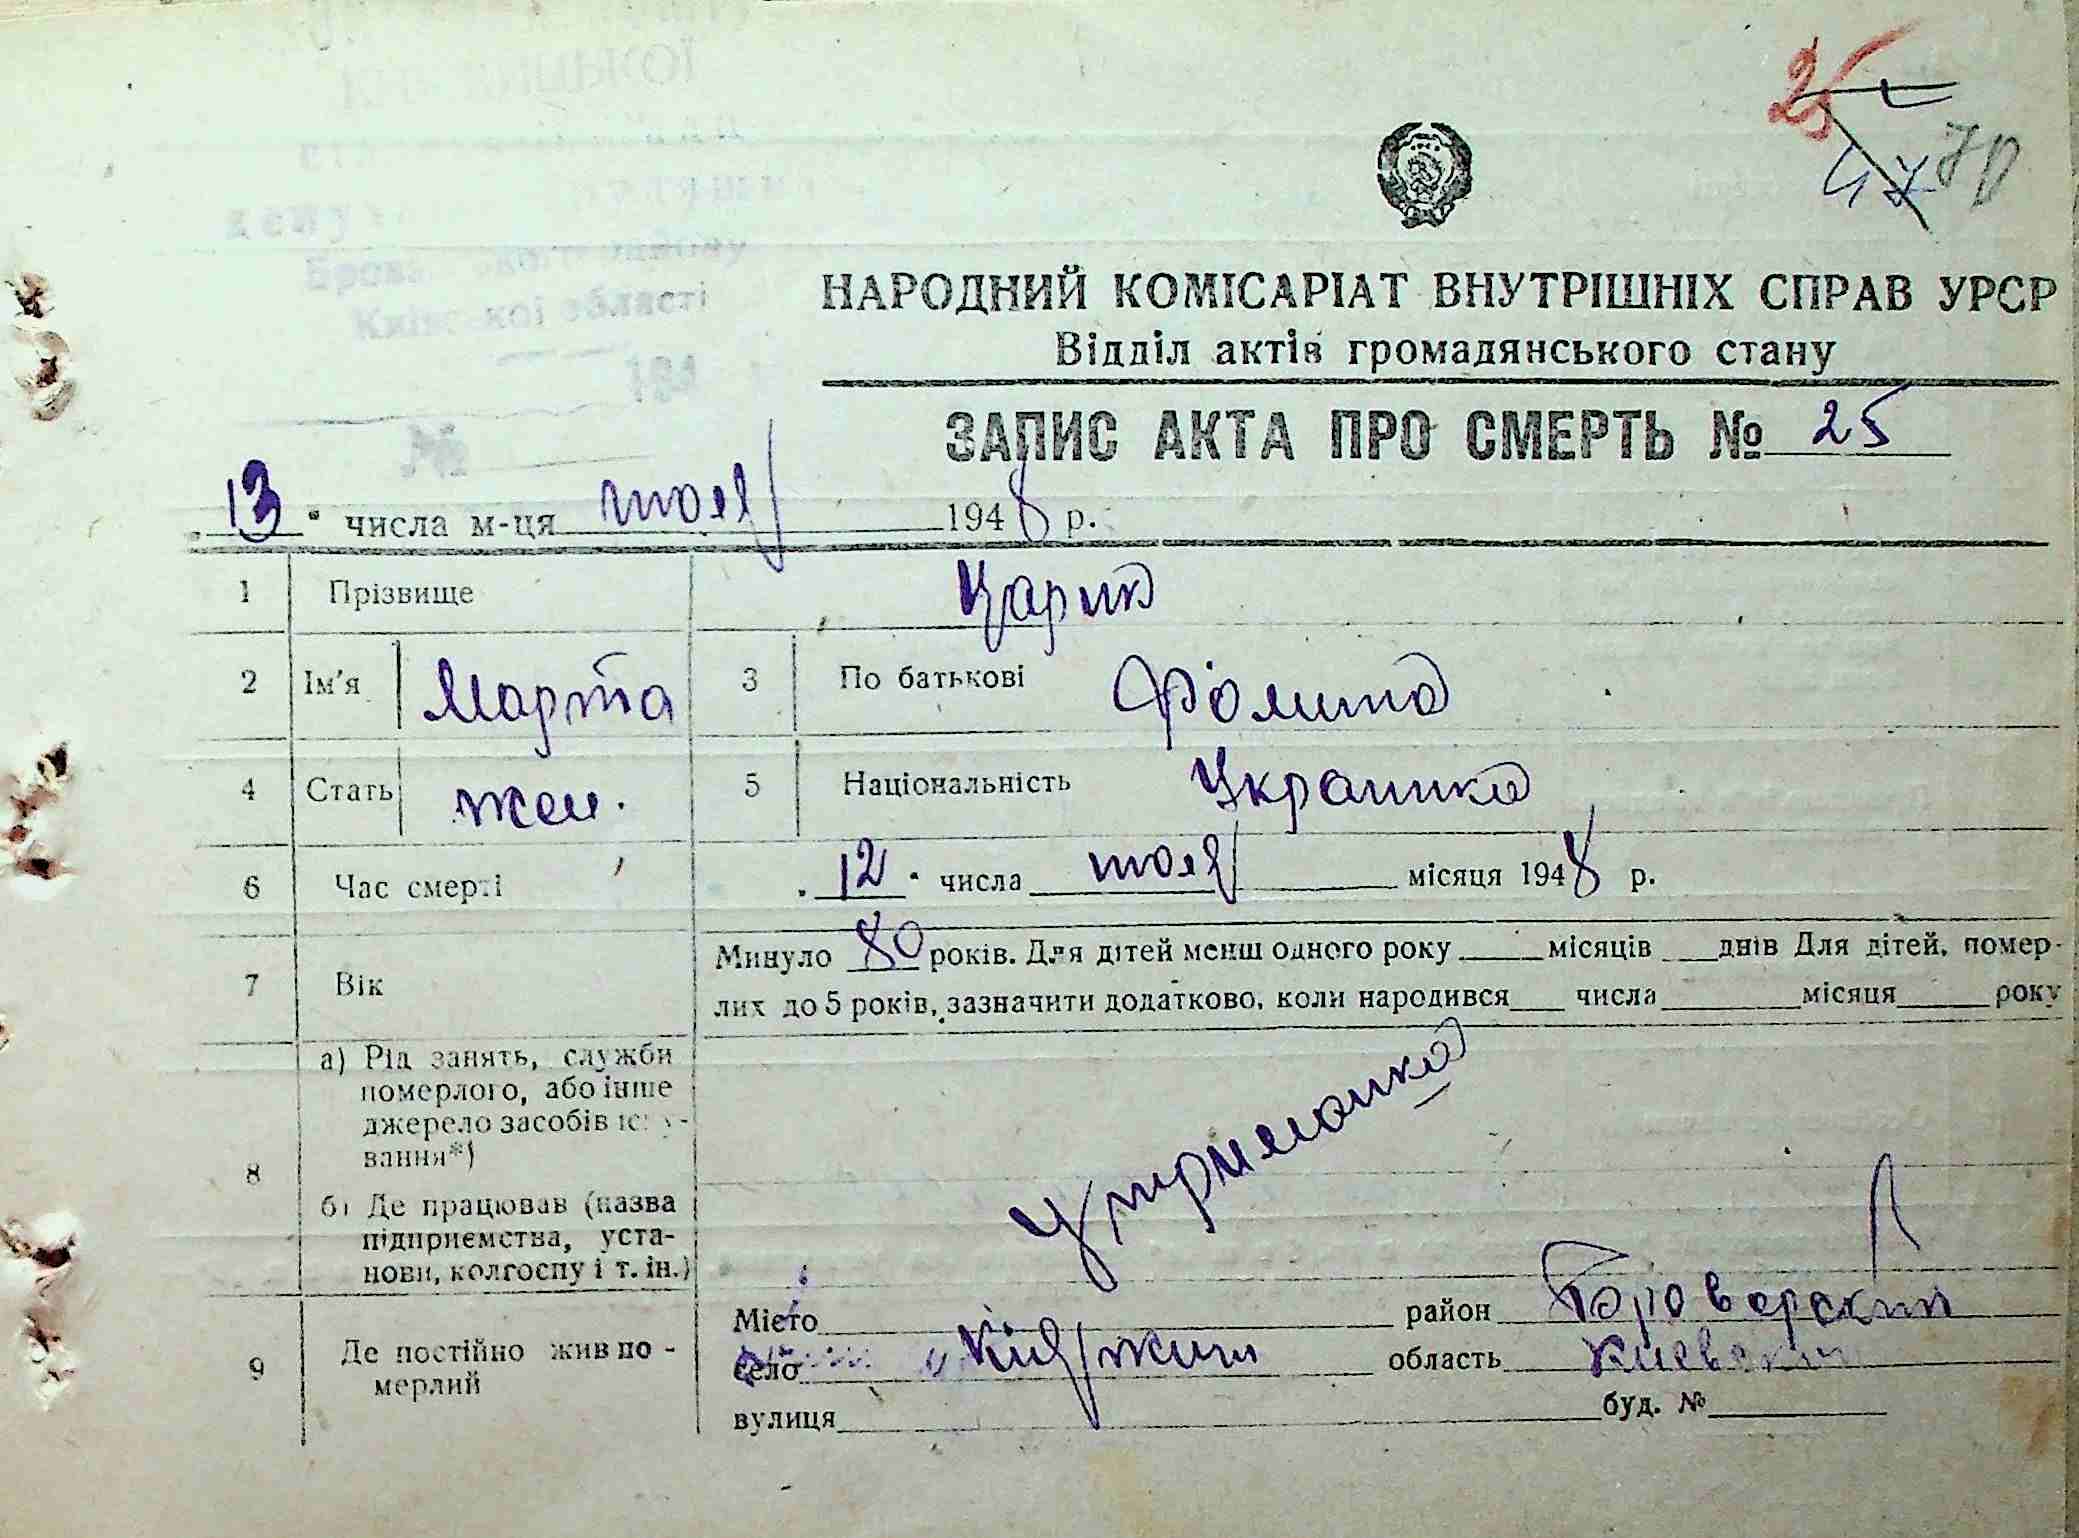 25
47 70
НАРОДНИЙ КОМІСАРІАТ ВНУТРІШНІХ СПРАВ УРСР
Відділ актів громадянського стану
ЗАПИС АКТА ПРО СМЕРТЬ № 25
13 числа м-ця июля 1948 р.
1 Прізвище Царик
2 Ім'я Марта 3 По батькові Фомина
4 Стать жен. 5 Національність Украинка
6 Час смерті 12 числа июля місяця 1948 р.
7 Вік Минуло 80 років. Для дітей менш одного року ____ місяців ____ днів Для дітей, помер-
лих до 5 років, зазначити додатково, коли народився ____ числа ____ місяця ____ року
8 а) Рід занять, служби
померлого, або інше
джерело засобів існу-
вання*)
б) Де працював (назва
підприємства, уста-
нови, колгоспу і т. ін.)
9 Де постійно жив по-
мерлий
Місто ____ район Броварский
село область Киевская
вулиця ____ буд. № ____
Київської області
194
№